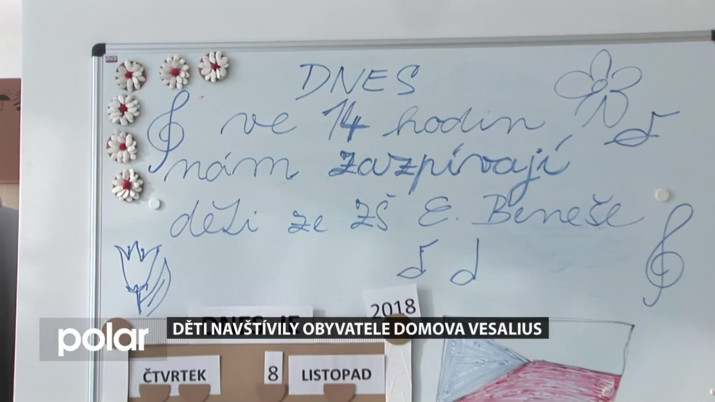 DNES
ve 14 hodin
nám zazpívají
děti ze ZŠ E. Beneše
DNES JE
2018
polar
DĚTI NAVŠTÍVILY OBYVATELE DOMOVA VESALIUS
ČTVRTEK 8 LISTOPAD